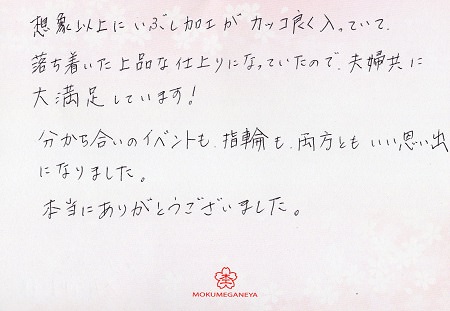 想象以上にいぶし加工がカッコ良く入っていて、
落ち着いた上品な仕上りになっていたので、夫婦共に
大満足しています！
分かち合いのイベントも、指輪も、両方ともいい思い出
になりました。
本当にありがとうございました。
MOKUMEGANEYA